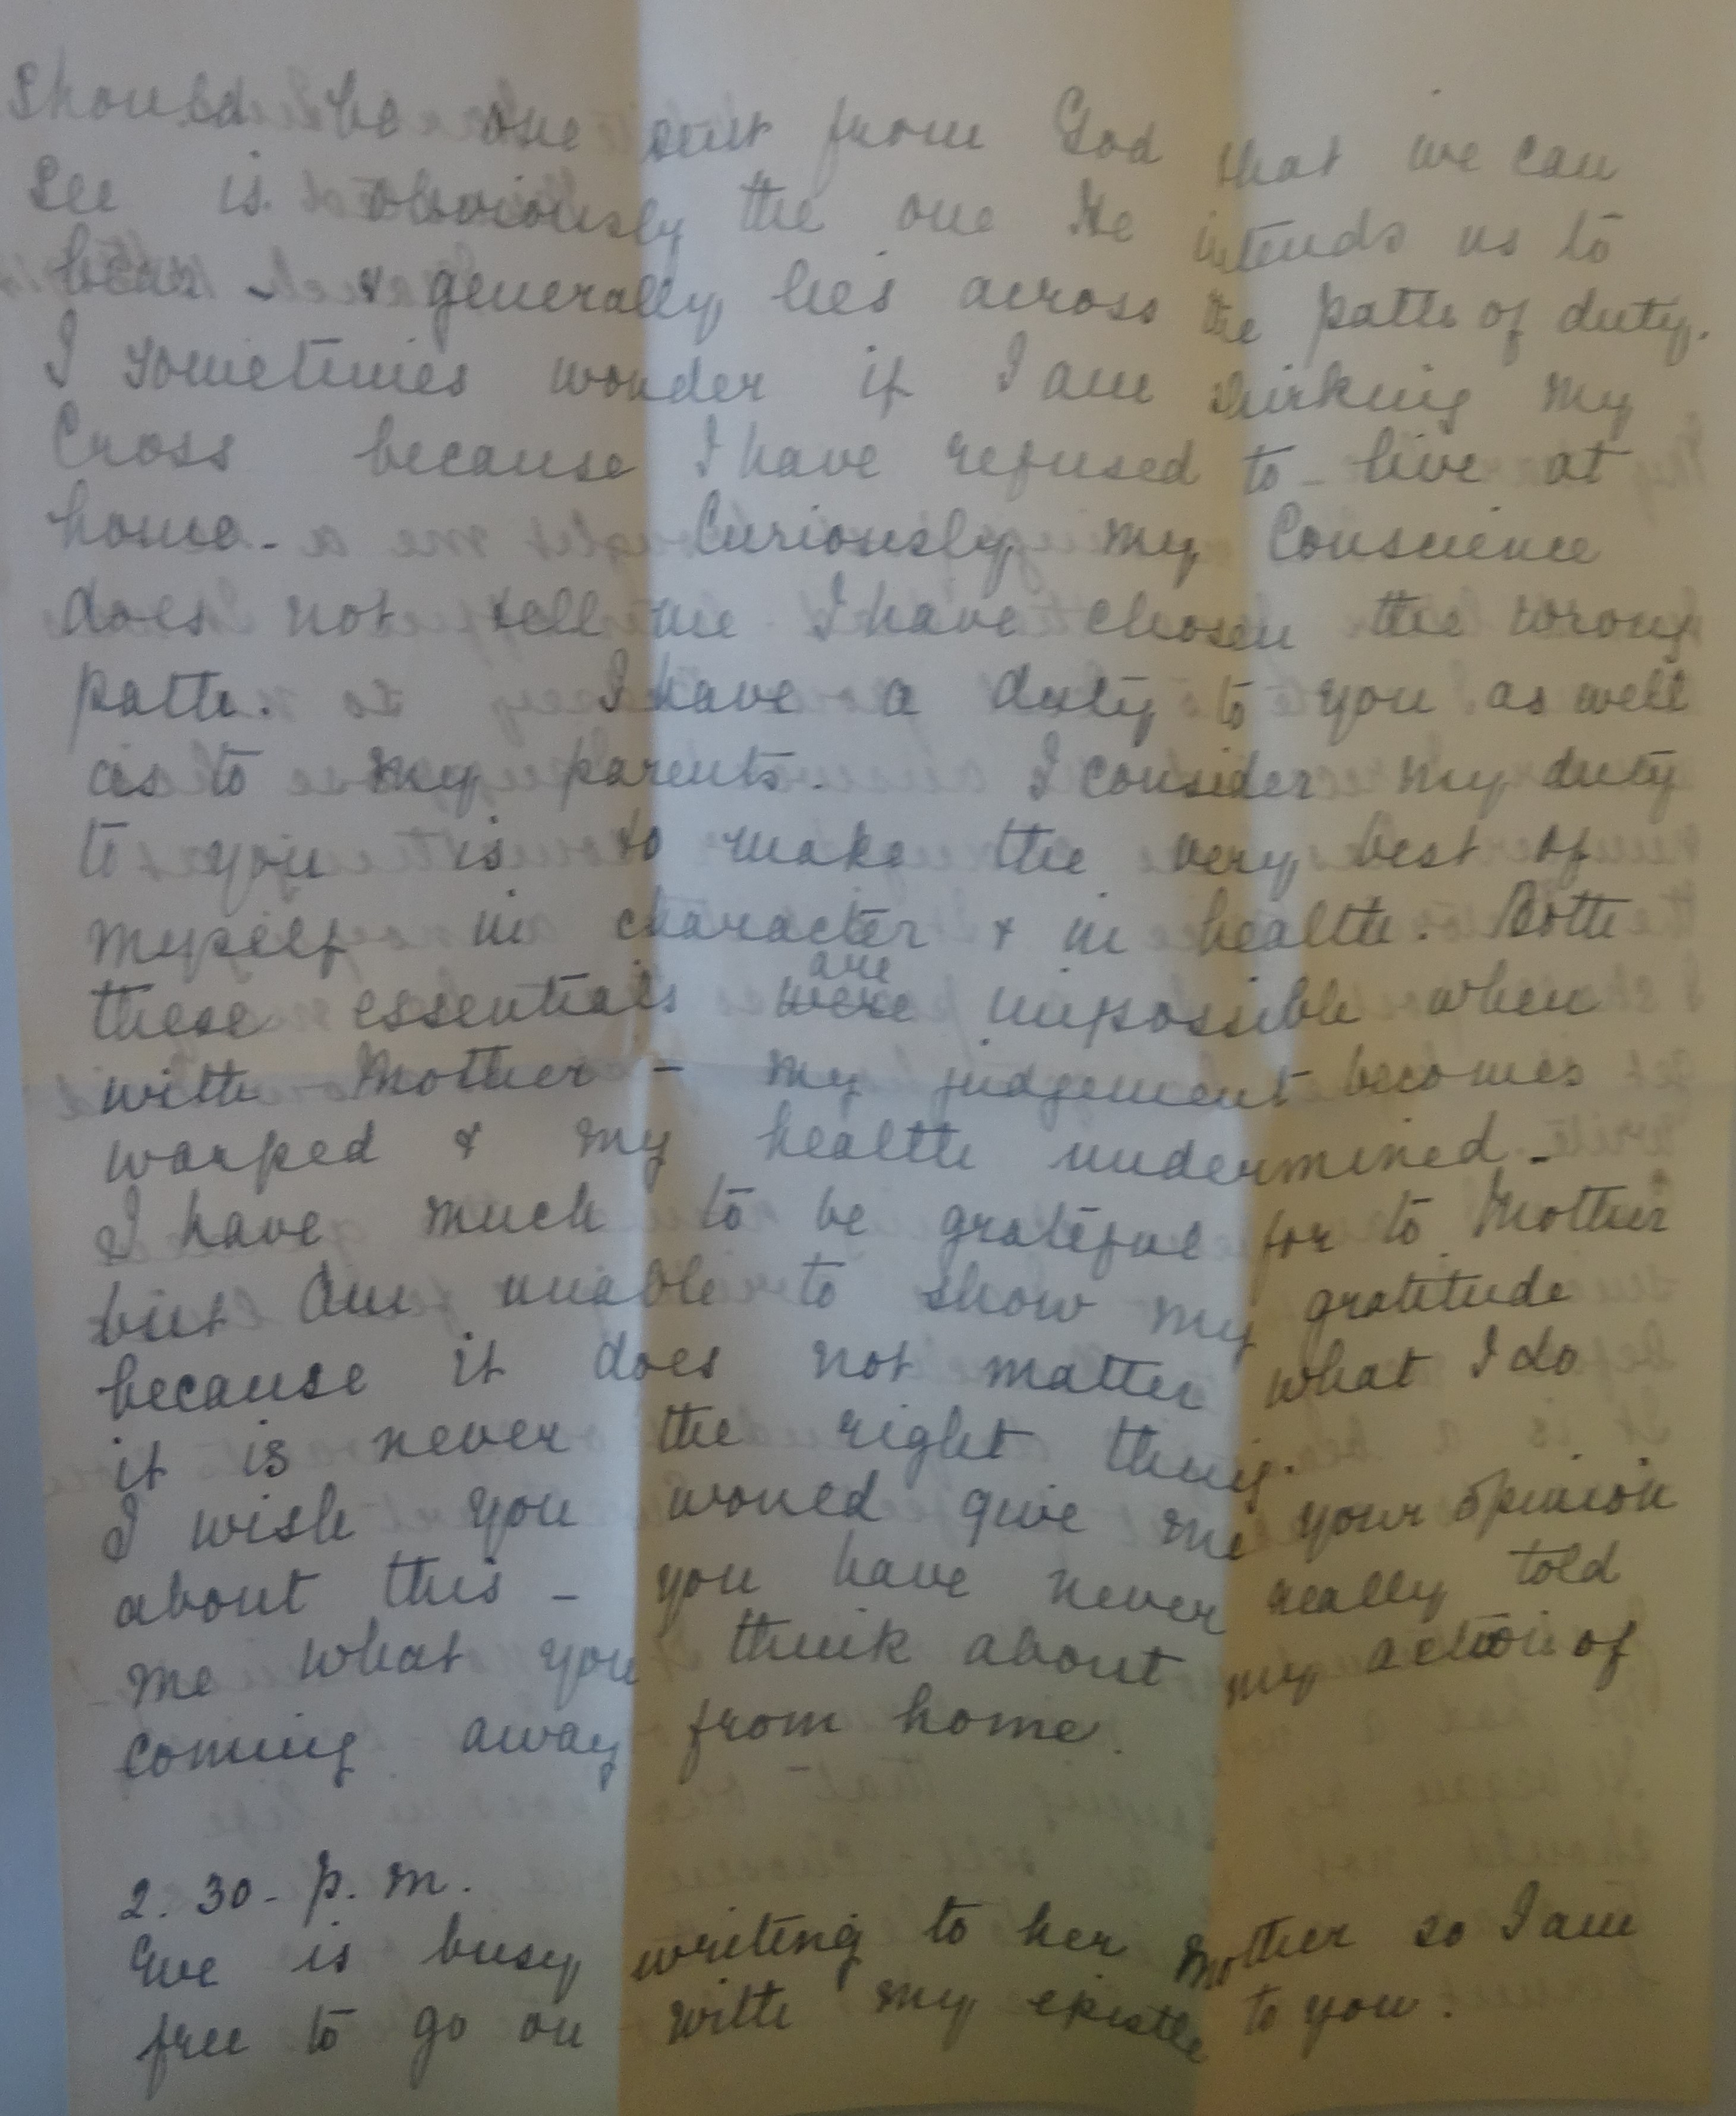 should be one sent from God that we can
see is obviously the one He intends us to
bear - & generally lies across the path of duty.
I sometimes wonder if I am shirking my
Cross because I have refused to live at
home - Curiously my Conscience
does not tell me I have chosen the wrong
path. I have a duty to you as well
as to my parents. I consider my duty
to you is to make the very best of
myself in character & in health. Both
are
these essentials were impossible when
with Mother - my judgement becomes
warped & my health undermined -
I have much to be grateful for to Mother
but am unable to show my gratitude
because it does not matter what I do
it is never the right thing.
I wish you would give me your opinion
about this - you have never really told
me what you think about my action of
coming away from home.
2. 30 - p. m.
Eve is busy writing to her Mother so I am
free to go on with my epistle to you.